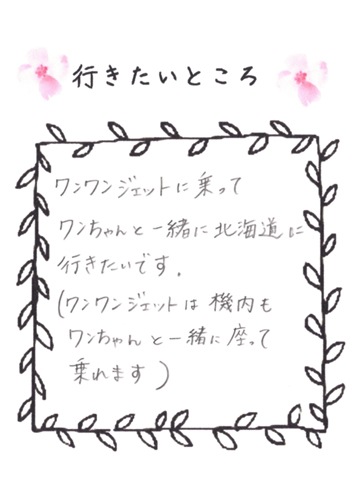 行きたいところ
ワンワンジェットに乗って
ワンちゃんと一緒に北海道に
行きたいです.
(ワンワンジェットは機内も
ワンちゃんと一緒に座って
乗れます)